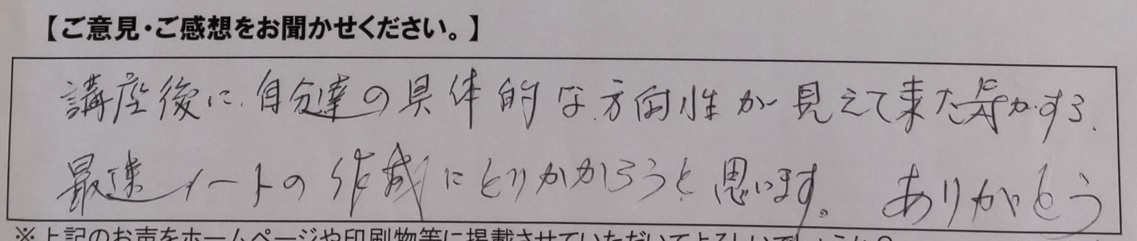 【ご意見・ご感想をお聞かせください。】
講座後に、自分達の具体的な方向性が見えて来た気がする。
最速ノートの作成にとりかかろうと思います。 ありがとう
※上記のお声をホームページや印刷物等に掲載させていただいてよろしいでしょうか?